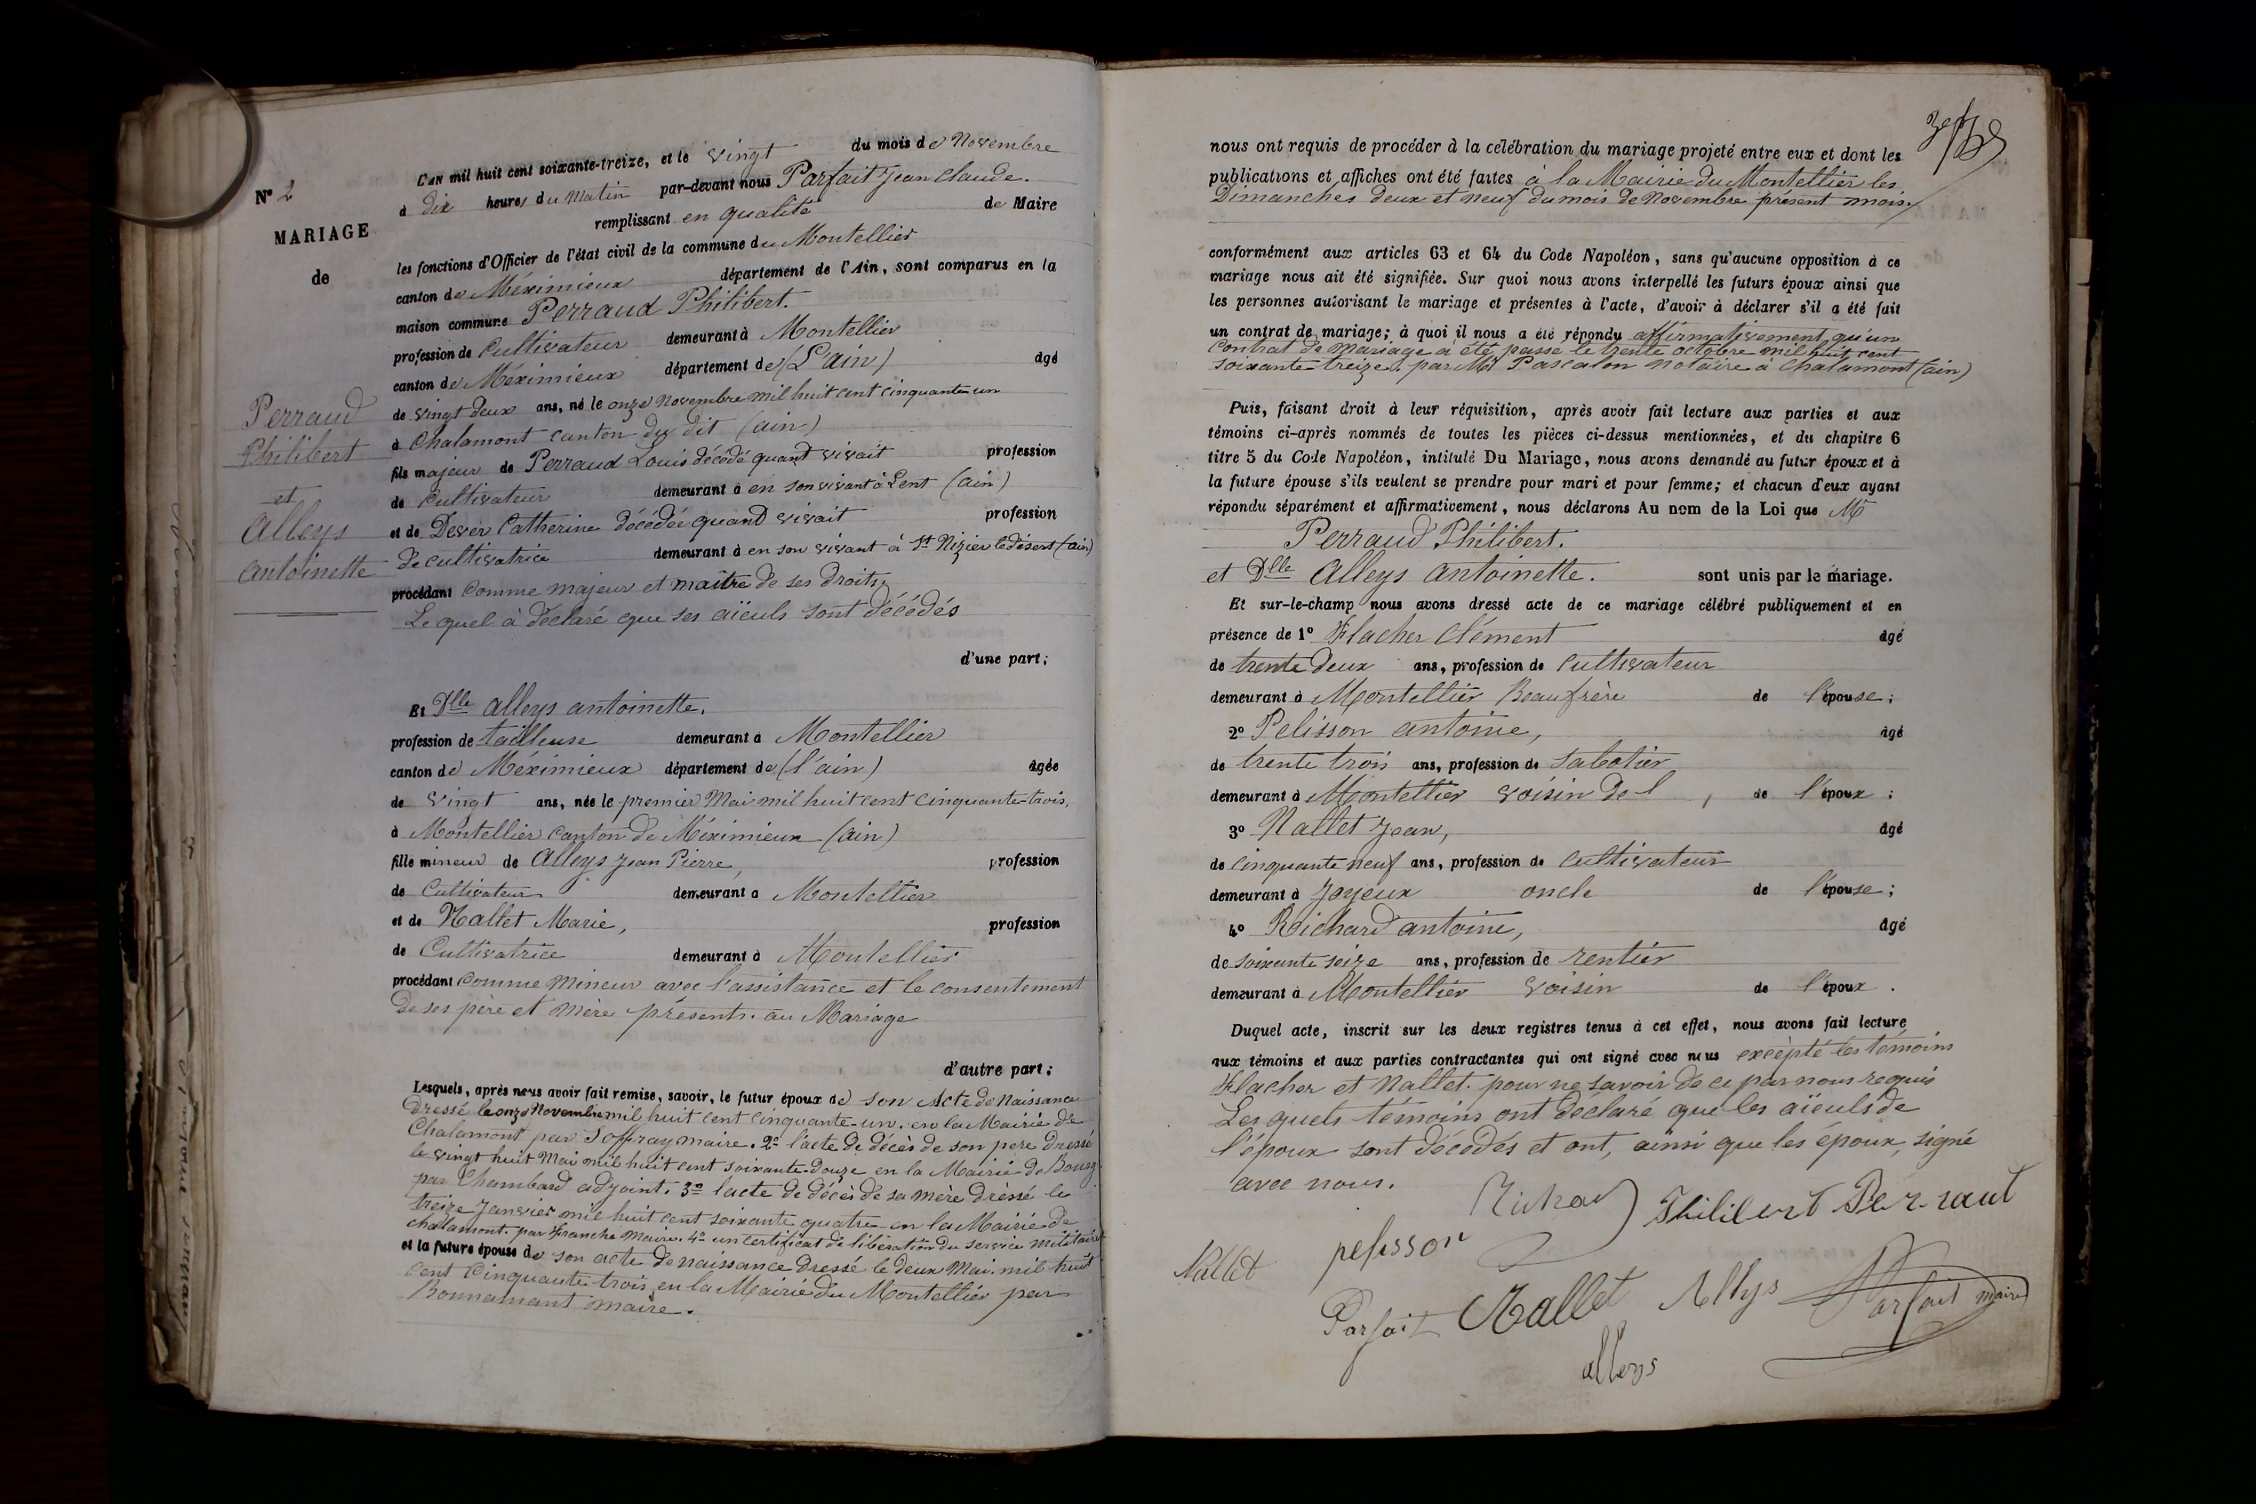 N° 2
MARIAGE
de
Perraud
Philibert
et
Alleys
Antoinette
L'AN mil huit cent soixante-treize, et le vingt du mois de Novembre
à dix heures du Matin par-devant nous Parfait Jean Claude.
remplissant en qualité de Maire
les fonctions d'Officier de l'état civil de la commune du Montellier
canton de Méximieux département de l'Ain, sont comparus en la
maison commune Perraud Philibert.
profession de Cultivateur demeurant à Montellier
canton de Méximieux département de (L'ain) âgé
de vingt deux ans, né le onze Novembre mil huit cent cinquante un
à Chalamont canton du dit (ain)
fils majeur de Perraud Louis décédé quand vivait profession
de Cultivateur demeurant à en son vivant à Lent (ain)
et de Dever Catherine décédée quand vivait profession
de cultivatrice demeurant à en son vivant à St Nizier le désert (ain)
procédant Comme majeur et maître de ses droits,
Le quel à déclaré que ses aïeuls sont décédés
d'une part;
Et Dlle Alleys antoinette.
profession de tailleuse demeurant à Montellier
canton de Méximieux département de (l'ain) âgée
de vingt ans, née le premier Mai mil huit cent cinquante-trois,
à Montellier canton de Méximieux (ain)
fille mineur de Alleys Jean Pierre, profession
de Cultivateur demeurant à Montellier
et de Nallet Marie, profession
de Cultivatrice demeurant à Montellier
procédant comme Mineur avec l'assistance et le consentement
de ses père et mère présents au Mariage
d'autre part;
Lesquels, après nous avoir fait remise, savoir, le futur époux de son Acte de Naissance
dressé le onze Novembre mil huit cent cinquante-un. en la Mairie de
Chalamont par Soffray maire. 2° l'acte de décès de son père dressé
le vingt huit Mai mil huit cent soixante-douze en la Mairie de Bourg
par Chambard adjoint. 3° l'acte de décès de sa mère dressé le
treize Janvier mil huit cent soixante quatre en la Mairie de
chalamont. par Franche Maire. 4° un certificat de libération du service militaire
et la future épouse de son acte de naissance dressé le deux Mai mil huit
cent cinquante trois, en la Mairie du Montellier par
Bonnamant maire.
nous ont requis de procéder à la célébration du mariage projeté entre eux et dont les
publications et affiches ont été faites à la Mairie du Montellier les
Dimanches deux et neuf du mois de Novembre présent mois.
conformément aux articles 63 et 64 du Code Napoléon, sans qu'aucune opposition à ce
mariage nous ait été signifiée. Sur quoi nous avons interpellé les futurs époux ainsi que
les personnes autorisant le mariage et présentes à l'acte, d'avoir à déclarer s'il a été fait
un contrat de mariage; à quoi il nous a été répondu affirmativement qu'un
contrat de mariage a été passé le trente octobre mil huit cent
soixante treize. par Me Pascalon Notaire à Chalamont (ain)
Puis, faisant droit à leur réquisition, après avoir fait lecture aux parties et aux
témoins ci-après nommés de toutes les pièces ci-dessus mentionnées, et du chapitre 6
titre 5 du Code Napoléon, intitulé Du Mariage, nous avons demandé au futur époux et à
la future épouse s'ils veulent se prendre pour mari et pour femme; et chacun d'eux ayant
répondu séparément et affirmativement, nous déclarons Au nom de la Loi que Mr
Perraud Philibert.
et Dlle Alleys Antoinette. sont unis par le mariage.
Et sur-le-champ nous avons dressé acte de ce mariage célébré publiquement et en
présence de 1° Flacher Clément âgé
de trente deux ans, profession de Cultivateur
demeurant à Montellier Beaufrère de l'épouse;
2° Pelisson antoine, âgé
de trente trois ans, profession de Sabotier
demeurant à Montellier voisin de l , de l'époux;
3° Nallet Jean, âgé
de cinquante neuf ans, profession de Cultivateur
demeurant à Joyeux oncle de l'épouse;
4° Richard antoine, âgé
de soixante seize ans, profession de rentier
demeurant à Montellier voisin de l'époux.
Duquel acte, inscrit sur les deux registres tenus à cet effet, nous avons fait lecture
aux témoins et aux parties contractantes qui ont signé avec nous excèpté les témoins
Flacher et Nallet. pour ne savoir de ce par nous requis
Les quels témoins ont déclaré que les aïeuls de
l'époux sont décédés et ont, ainsi que les époux, signé
avec nous.
Richard Philibert Perraut
Nallet pelisson
Parfait Nallet Alleys Parfait maire
alleys